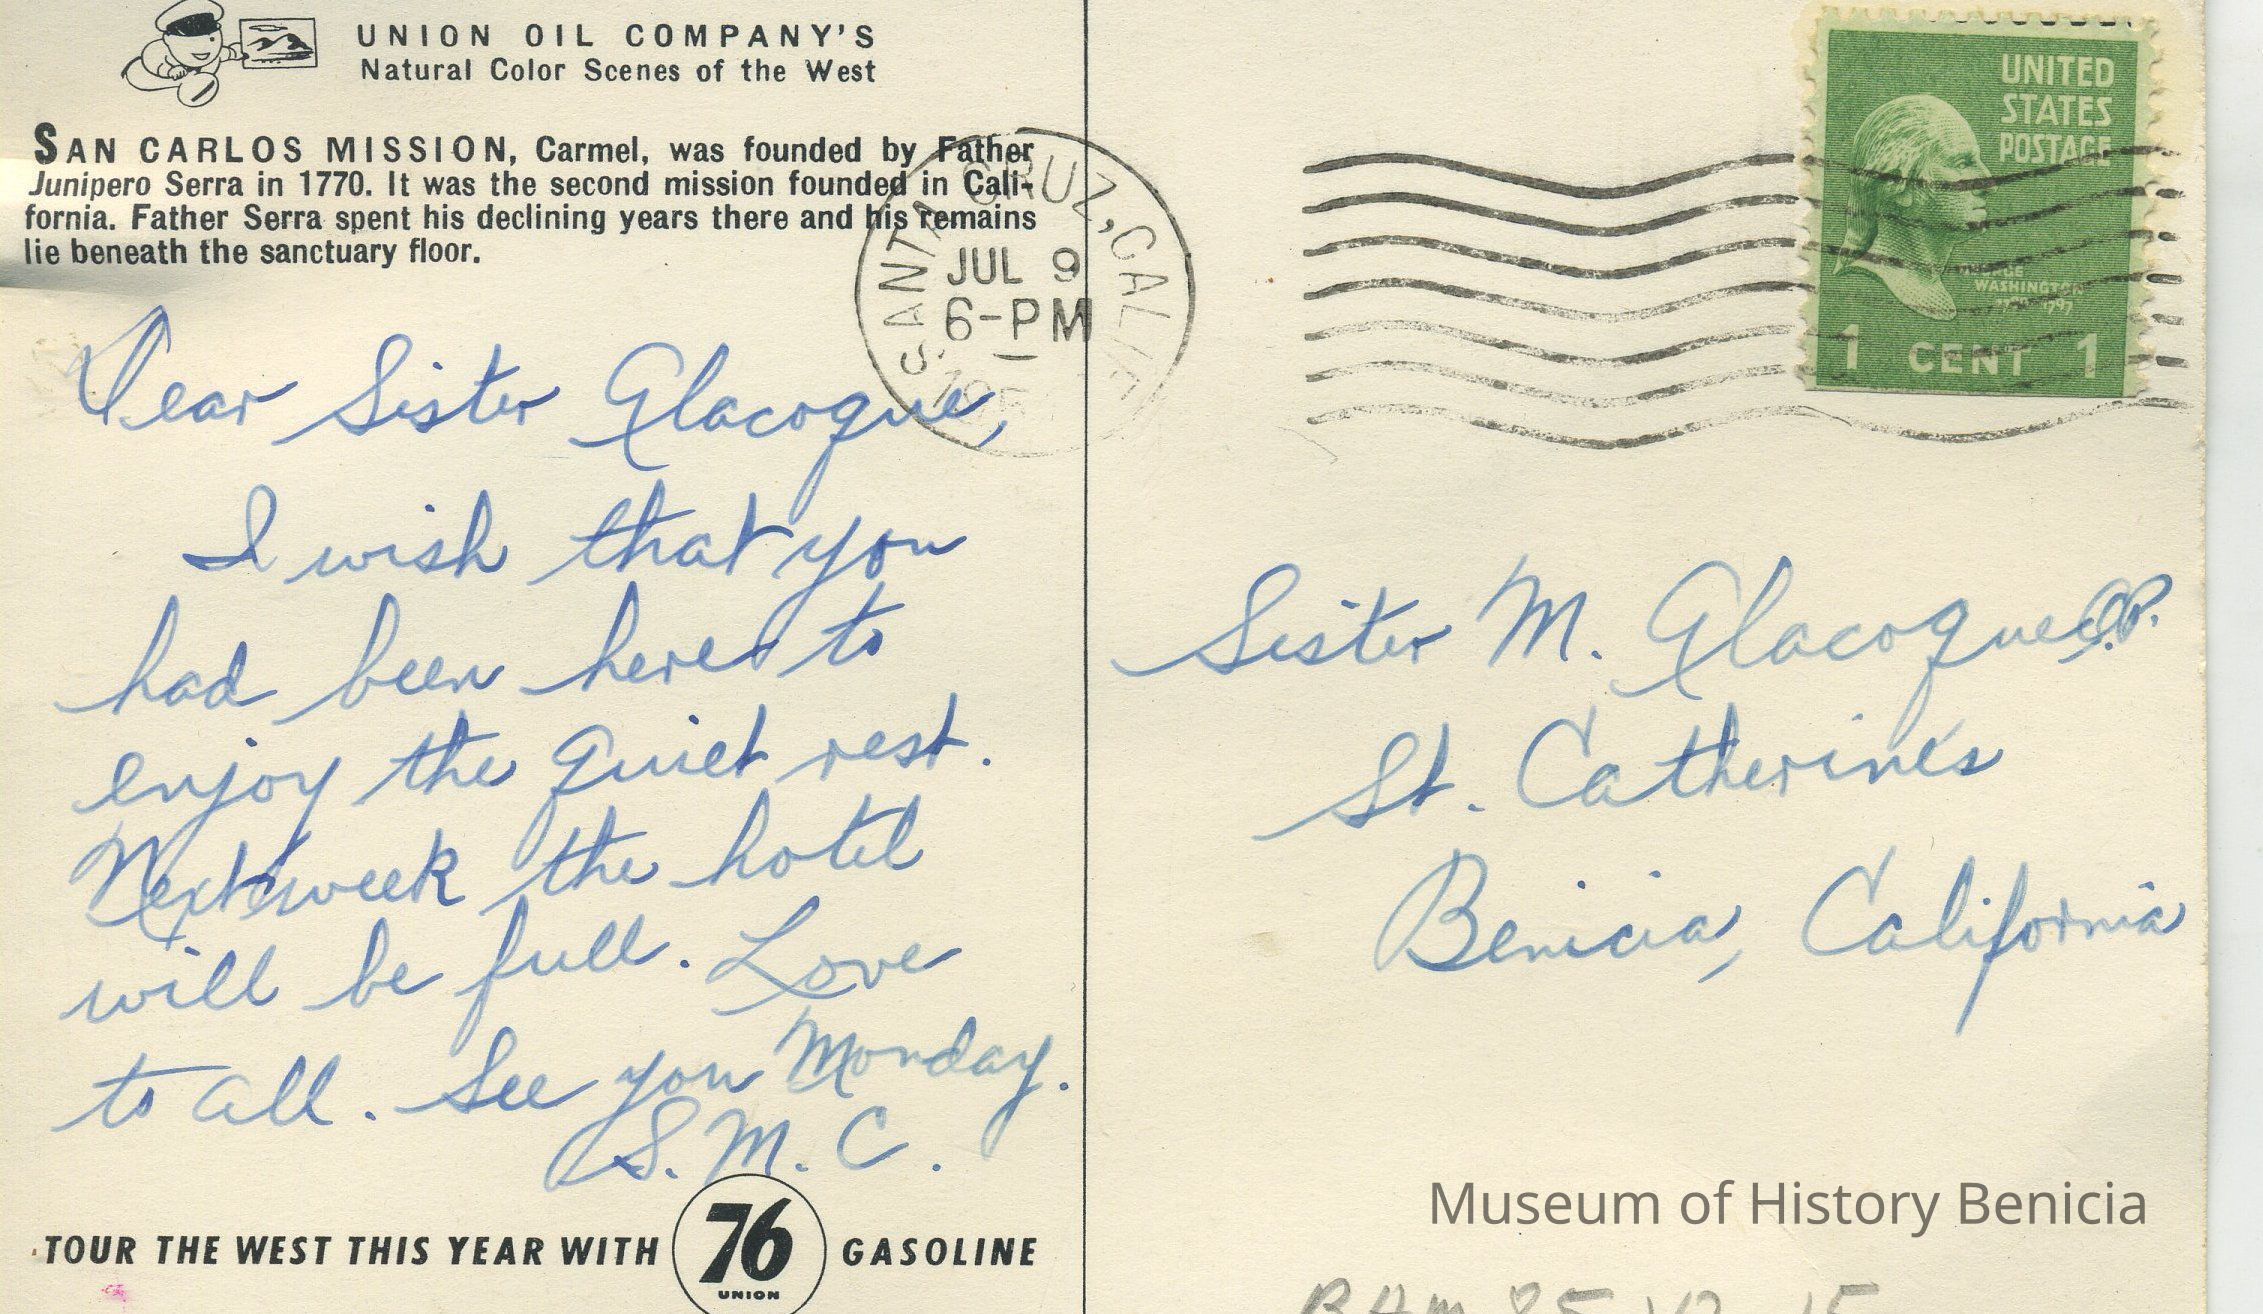 UNION OIL COMPANY'S
Natural Color Scenes of the West
SAN CARLOS MISSION, Carmel, was founded by Father
Junipero Serra in 1770. It was the second mission founded in Cali-
fornia. Father Serra spent his declining years there and his remains
lie beneath the sanctuary floor.
Dear Sister Alacoque,
I wish that you
had been here to
enjoy the quiet rest.
Next week the hotel
will be full. Love
to all. See you Monday.
S. M. C.
TOUR THE WEST THIS YEAR WITH 76 GASOLINE
UNION
SANTA CRUZ, CALIF.
JUL 9
6-PM
UNITED
STATES
POSTAGE
WASHINGTON
1 CENT 1
Sister M. Alacoque O.P.
St. Catherine's
Benicia, California
Museum of History Benicia